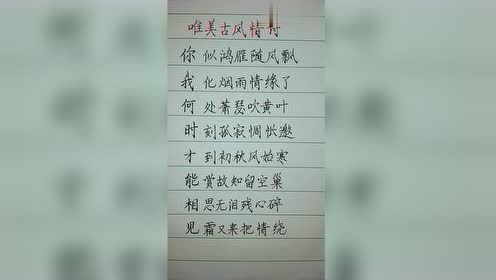 唯美古风情诗
你似鸿雁随风飘
我化烟雨情缘了
何处萧瑟吹黄叶
时刻孤寂惆怅邀
才到初秋风始寒
能赏故知留空巢
相思无泪残心碎
见霜又来把情绕